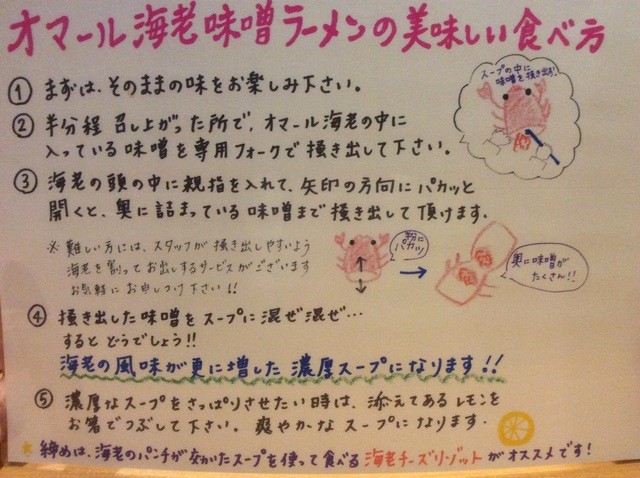 オマール海老味噌ラーメンの美味しい食べ方
① まずは、そのままの味をお楽しみ下さい。
スープの中に
味噌を掻き出す!
② 半分程 召し上がった所で、オマール海老の中に
入っている味噌を専用フォークで掻き出して下さい。
③ 海老の頭の中に親指を入れて、矢印の方向にパカッと
開くと、奥に詰まっている味噌まで掻き出して頂けます。
※ 難しい方には、スタッフが掻き出しやすいよう
海老を割ってお出しするサービスがございます
お気軽にお申しつけ下さい!!
パカッ
奥に味噌が
たくさん!!
④ 掻き出した味噌をスープに混ぜ混ぜ…
すると どうでしょう!!
海老の風味が更に増した 濃厚スープになります!!
⑤ 濃厚なスープをさっぱりさせたい時は、添えてあるレモンを
お箸でつぶして下さい。爽やかなスープになります.
* 締めは、海老のパンチが効いたスープを使って食べる 海老チーズリゾット がオススメです!